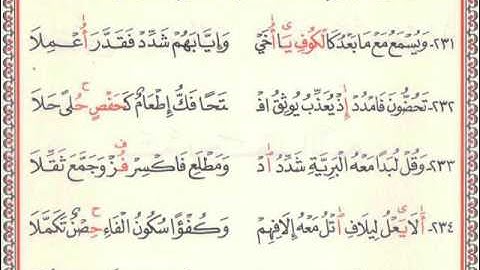 ٢٣١- وَيُسْمَعُ مَعْ مَا بَعْدُ كَالْكُوفِ يَا أُخَيْ وَإِيَّابَهُمْ شَدِّدْ فَقَدَّرَ أُعْمِلَا
٢٣٢- تَحُضُّونَ فَامْدُدْ إِذْ يُعَذِّبُ يُوثِقُ افْـ ـتَحًا فَكُّ إِطْعَامٌ كَحَفْصٍ حُلًى حَلَا
٢٣٣- وَقُلْ لُبَّدًا مَعْهُ الْبَرِيَّةِ شَدِّدْ أُدْ وَمَطْلَعِ فَاكْسِرْ فُزْ وَجَمَّعَ ثَقَّلَا
٢٣٤- أَلَا يَعْلُ لِيلَافِ اتْلُ مَعْهُ إِلَافِهِمْ وَكُفْؤًا سُكُونُ الْفَاءِ حِصْنٌ تَكَمَّلَا